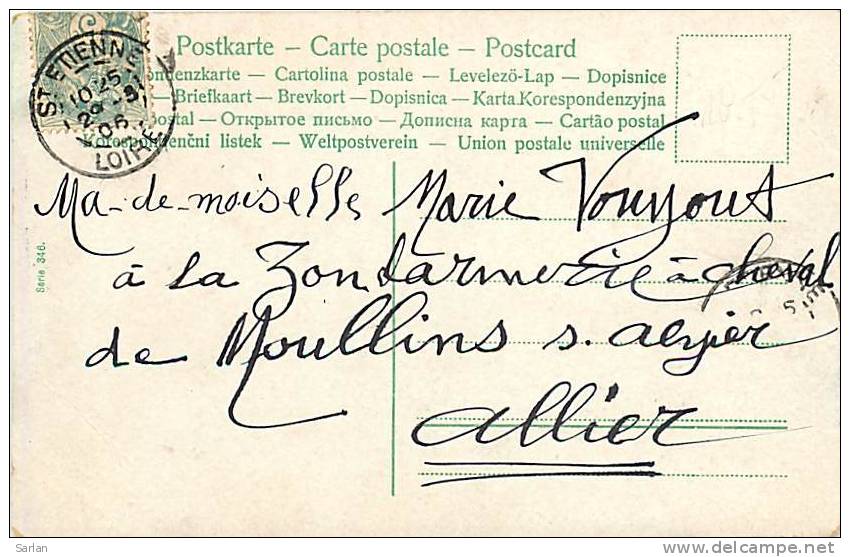 Postkarte – Carte postale – Postcard
ondenzkarte – Cartolina postale – Levelezö-Lap – Dopisnice
– Briefkaart – Brevkort – Dopisnica – Karta Korespondenzyjna
ostal – Открытое письмо – Дописна карта – Cartão postal
Korespondenční listek – Weltpostverein – Union postale universelle
ST ETIENNE
10 25
29 -5
06
LOIRE
Ma-de-moiselle Marie Vouyout
à la Zondarmerie à cheval
de Moullins s. alyier
allier
Serie 346.
Sarlan
www.delcampe.net